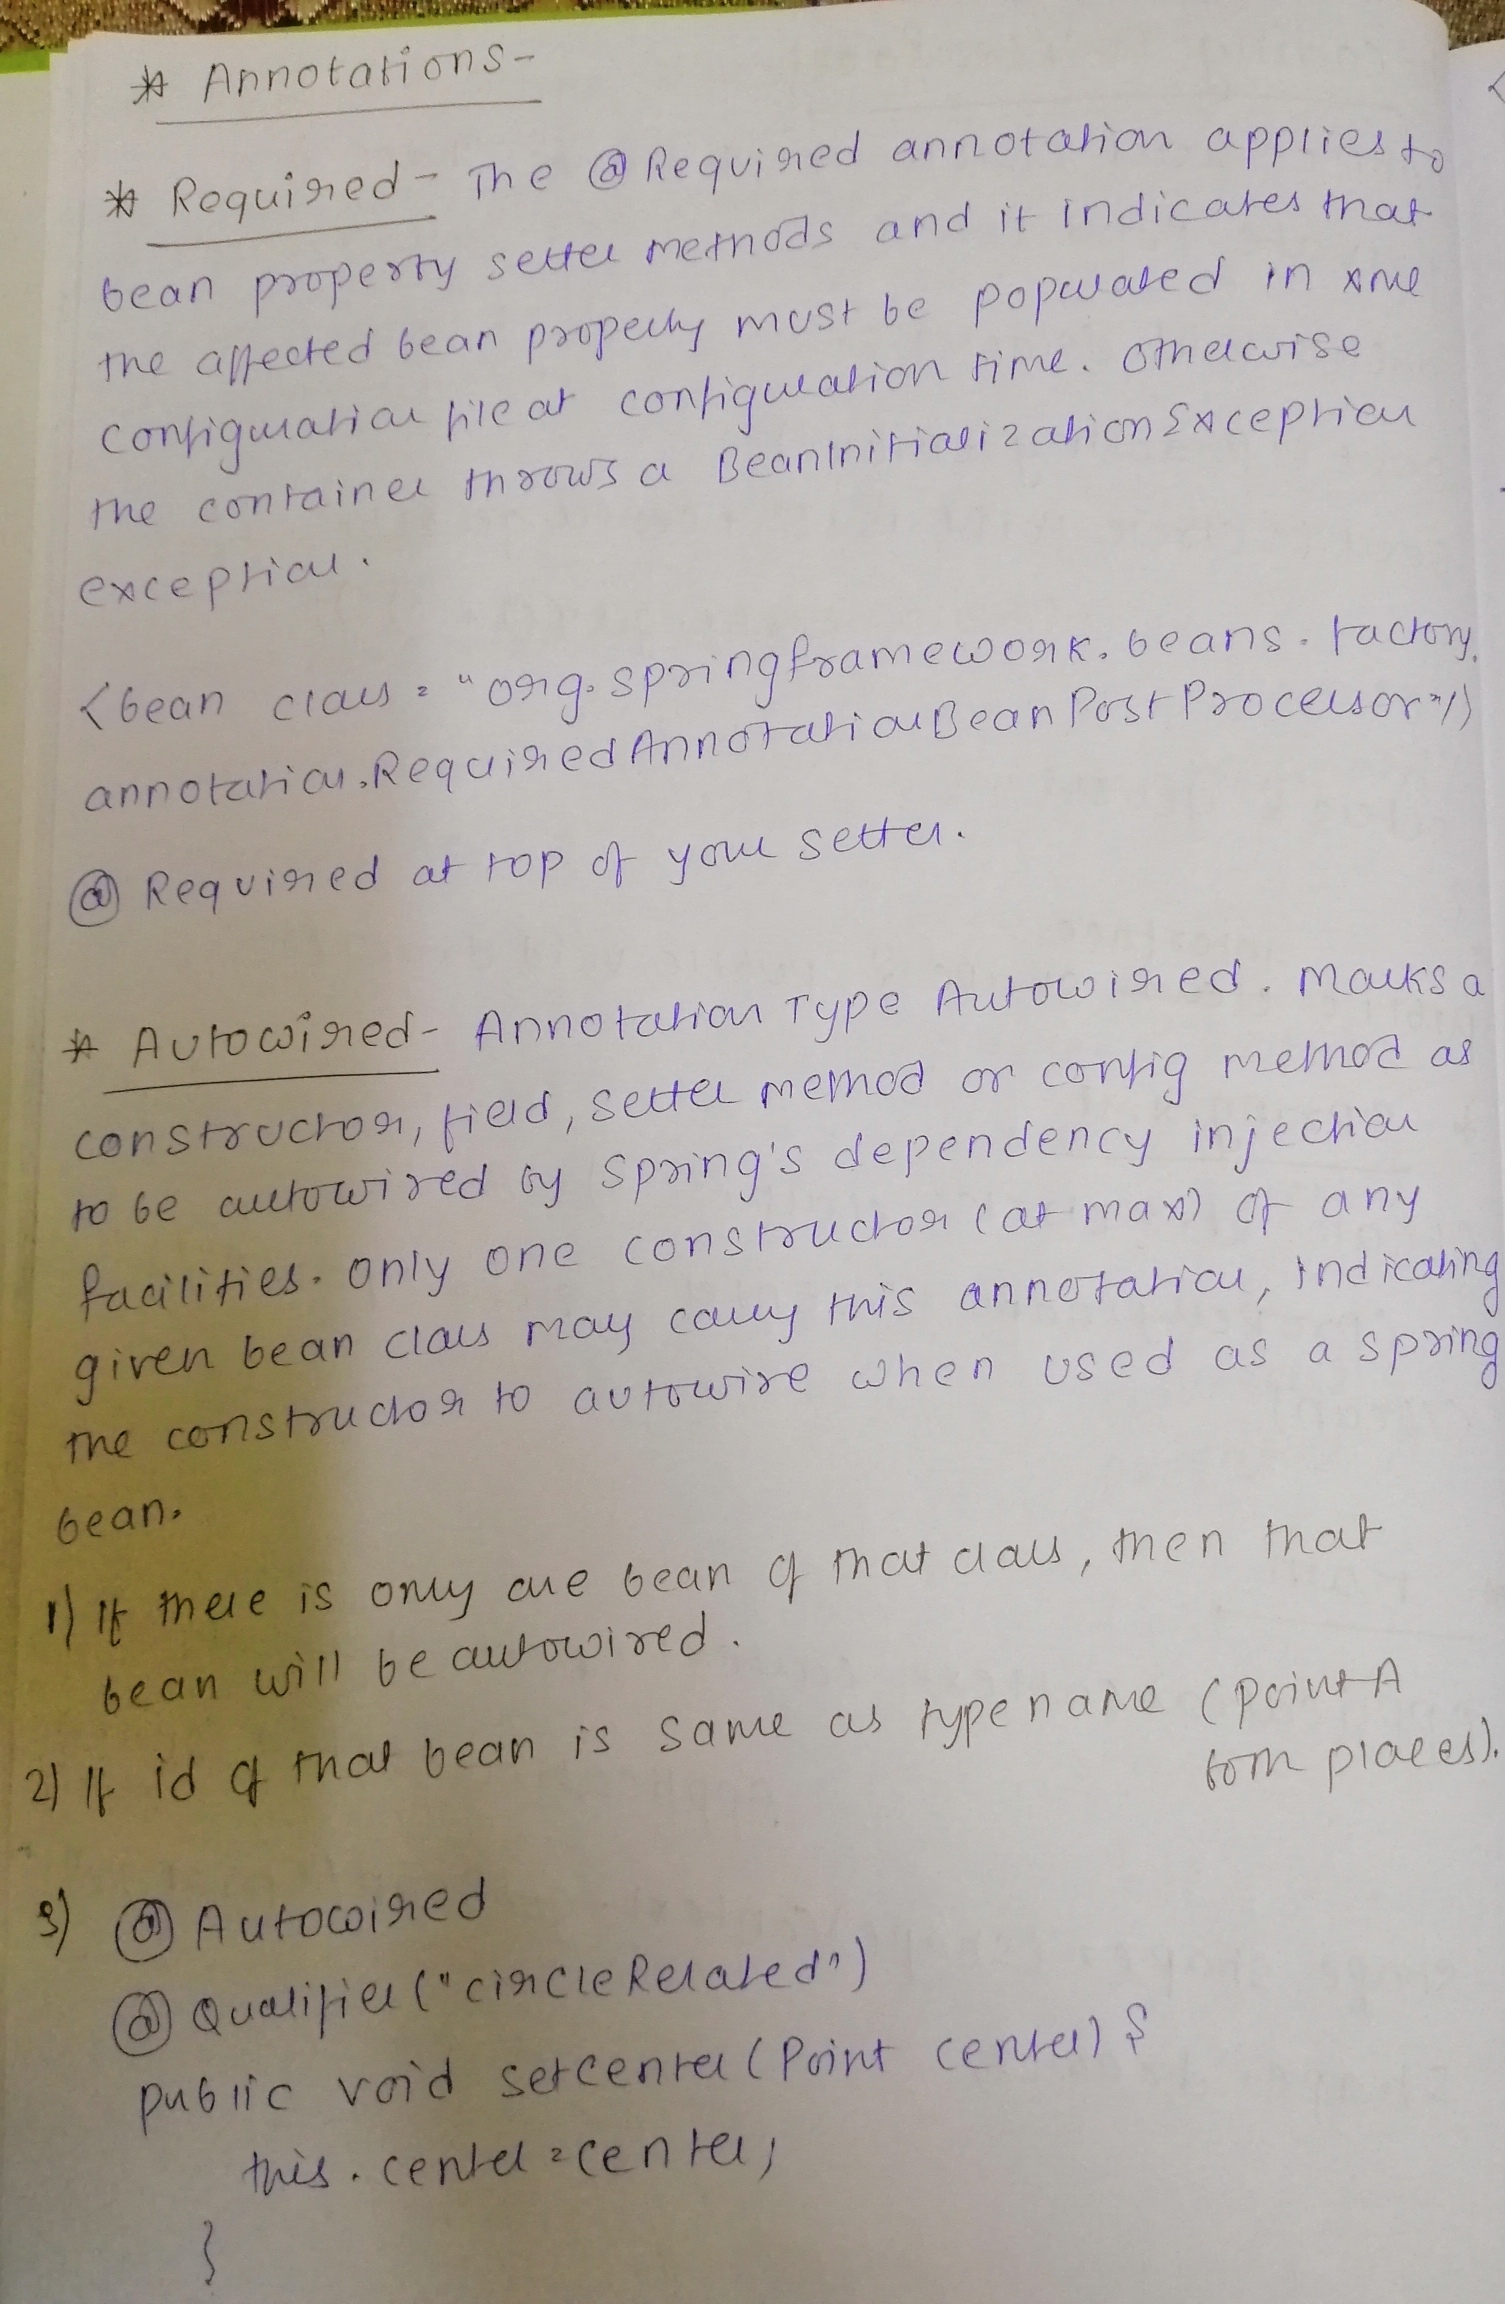 * Annotations-
* Required - The @Required annotation applies to
bean property setter methods and it indicates that
the affected bean property must be populated in XML
configuration file at configuration time. Otherwise
the container throws a BeanInitializationException
exception.
<bean class = "org.springframework.beans.factory.
annotation.RequiredAnnotationBeanPostProcessor"/>
@ Required at top of your setter.
* Autowired - Annotation Type Autowired. Marks a
constructor, field, setter method or config method as
to be autowired by Spring's dependency injection
facilities. Only one constructor (at max) of any
given bean class may carry this annotation, indicating
the constructor to autowire when used as a spring
bean.
1) If there is only one bean of that class, then that
bean will be autowired.
2) If id of that bean is same as type name (pointA
both places).
3) @ Autowired
@ Qualifier ("circleRelated")
public void setcenter (Point center) {
this.center = center;
}